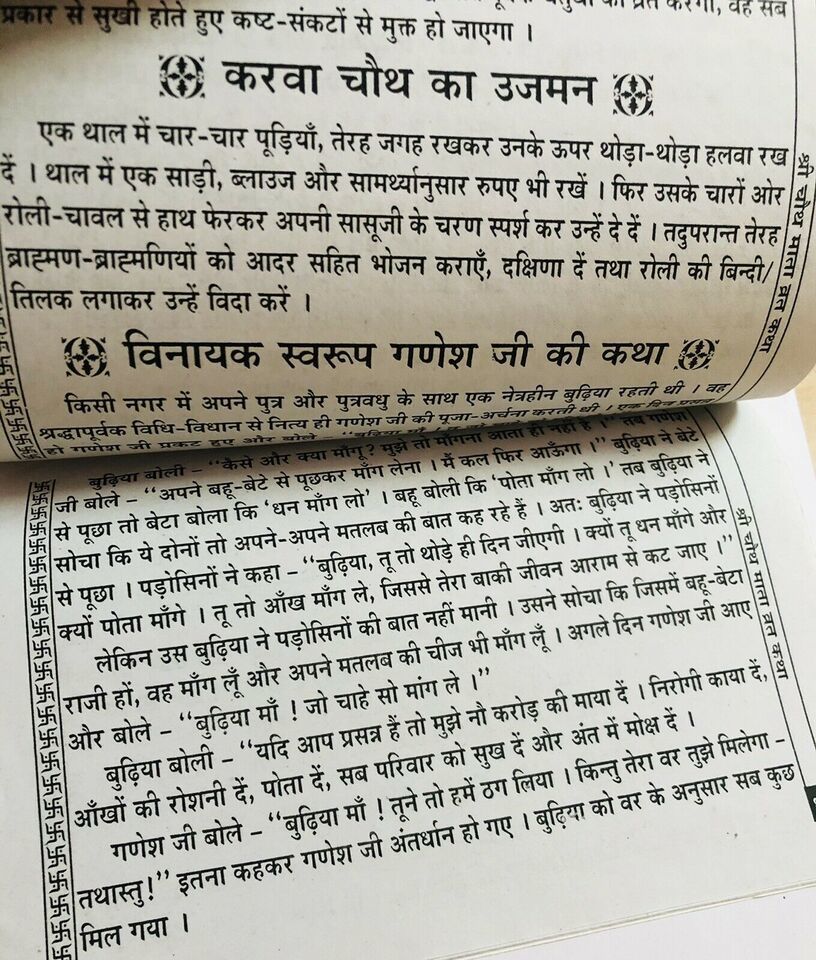 प्रकार से सुखी होते हुए कष्ट-संकटों से मुक्त हो जाएगा ।
करवा चौथ का उजमन
एक थाल में चार-चार पूड़ियाँ, तेरह जगह रखकर उनके ऊपर थोड़ा-थोड़ा हलवा रख
दें । थाल में एक साड़ी, ब्लाउज और सामर्थ्यानुसार रुपए भी रखें । फिर उसके चारों ओर
रोली-चावल से हाथ फेरकर अपनी सासूजी के चरण स्पर्श कर उन्हें दे दें । तदुपरान्त तेरह
ब्राह्मण-ब्राह्मणियों को आदर सहित भोजन कराएँ, दक्षिणा दें तथा रोली की बिन्दी/
तिलक लगाकर उन्हें विदा करें ।
विनायक स्वरूप गणेश जी की कथा
किसी नगर में अपने पुत्र और पुत्रवधु के साथ एक नेत्रहीन बुढ़िया रहती थी । वह
श्रद्धापूर्वक विधि-विधान से नित्य ही गणेश जी की पूजा-अर्चना करती थी । एक दिन
हो गणेश जी प्रकट हुए और बोले –
श्री चौथ माता व्रत कथा
बुढ़िया बोली – “कैसे और क्या माँगू? मुझे तो माँगना आता ही नहीं है ।” तब गणेश
जी बोले – “अपने बहू-बेटे से पूछकर माँग लेना । मैं कल फिर आऊँगा ।” बुढ़िया ने बेटे
से पूछा तो बेटा बोला कि ‘धन माँग लो’ । बहू बोली कि ‘पोता माँग लो ।’ तब बुढ़िया ने
सोचा कि ये दोनों तो अपने-अपने मतलब की बात कह रहे हैं । अतः बुढ़िया ने पड़ोसिनों
से पूछा । पड़ोसिनों ने कहा – “बुढ़िया, तू तो थोड़े ही दिन जीएगी । क्यों तू धन माँगे और
क्यों पोता माँगे । तू तो आँख माँग ले, जिससे तेरा बाकी जीवन आराम से कट जाए ।”
लेकिन उस बुढ़िया ने पड़ोसिनों की बात नहीं मानी । उसने सोचा कि जिसमें बहू-बेटा
राजी हों, वह माँग लूँ और अपने मतलब की चीज भी माँग लूँ । अगले दिन गणेश जी आए
और बोले – “बुढ़िया माँ ! जो चाहे सो मांग ले ।”
बुढ़िया बोली – “यदि आप प्रसन्न हैं तो मुझे नौ करोड़ की माया दें । निरोगी काया दें,
आँखों की रोशनी दें, पोता दें, सब परिवार को सुख दें और अंत में मोक्ष दें ।
गणेश जी बोले – “बुढ़िया माँ ! तूने तो हमें ठग लिया । किन्तु तेरा वर तुझे मिलेगा –
तथास्तु!” इतना कहकर गणेश जी अंतर्धान हो गए । बुढ़िया को वर के अनुसार सब कुछ
मिल गया ।
श्री चौथ माता व्रत कथा